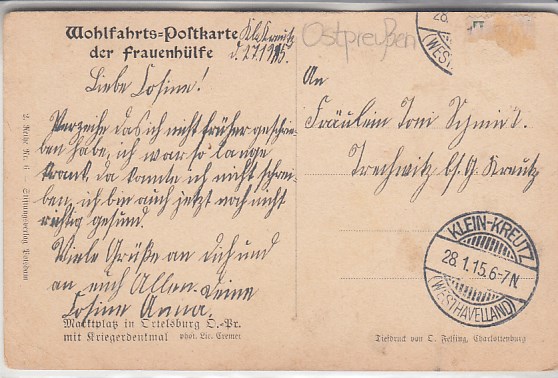 Wohlfahrts-Postkarte
der Frauenhülfe
Kl. Kreutz
d. 27.1.15.
Ostpreußen
28.
(WEST
Liebe Cosine!
Verzeihe das ich nicht früher geschrie-
ben habe, ich war so lange
krank da konnte ich nicht schrei-
ben, ich bin auch jetzt noch nicht
richtig gesund.
Viele Grüße an dich und
an euch Allen. Deine
Cosine Anna.
An
Fräulein Toni Schmidt.
Trechwitz b. G. Kreutz
KLEIN-KREUTZ
28.1.15.6-7N
(WESTHAVELLAND)
2. Reihe Nr. 6 Stiftungsverlag Potsdam
Marktplatz in Ortelsburg O.-Pr.
mit Kriegerdenkmal phot. Lic. Cremer
Tiefdruck von O. Felsing, Charlottenburg